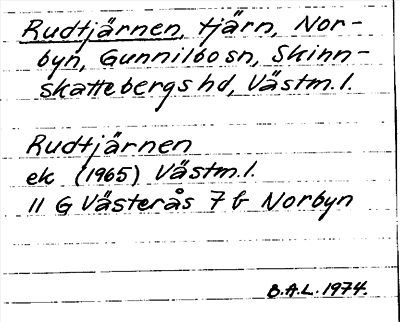 Rudtjärnen, tjärn, Nor-
byn, Gunnilbo sn, Skinn-
skattebergs hd, Västm. l.
Rudtjärnen
ek (1965) Västm. l.
11 G Västerås 7 b Norbyn
B.A.L. 1974.